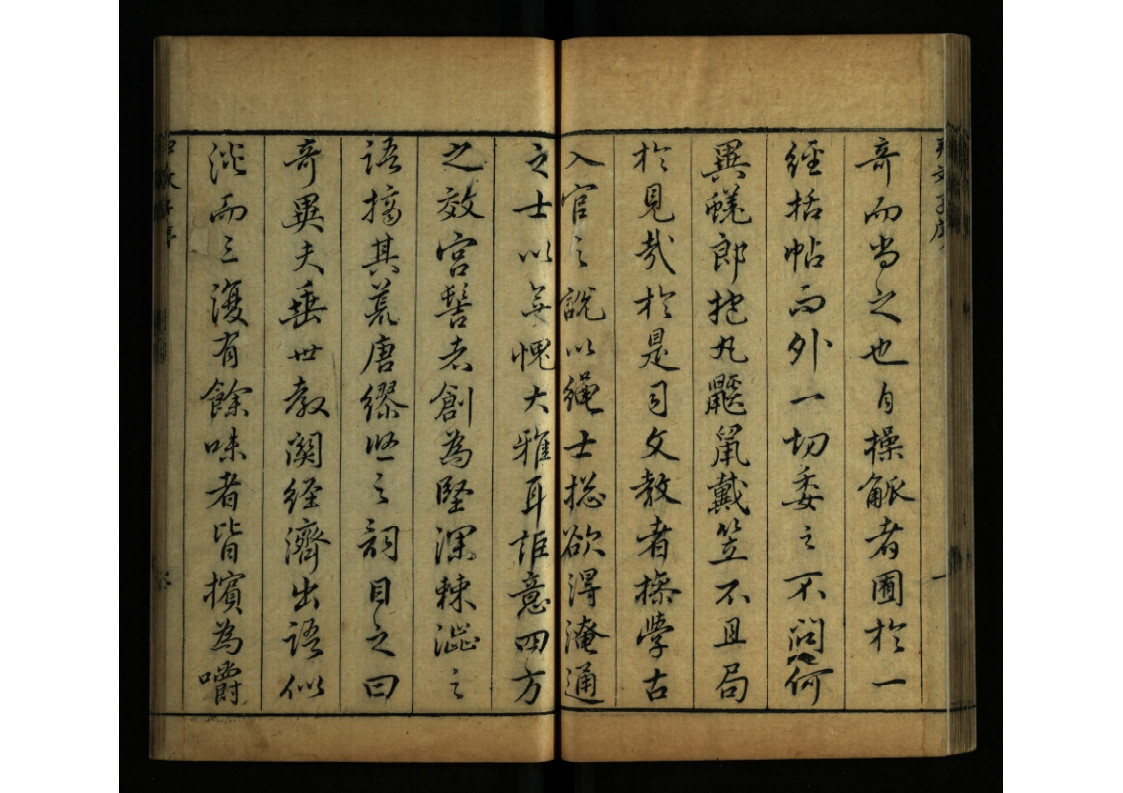 奇而尚之也自操觚者圃於一
經括帖而外一切委之不問何
異蜣郎抱丸鼴鼠戴笠不且局
於見哉於是司文教者操學古
入官之說以繩士揔欲得淹通
之士以無愧大雅耳詎意四方
之效宮髻者創為堅深棘澁之
語摛其荒唐繆悠之詞目之曰
奇異夫垂世教関經濟出語似
淡而三復有餘味者皆擯為嚼